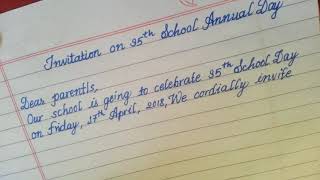 Invitation on 25th School Annual Day
Dear parents,
Our school is going to celebrate 25th School Day
on friday, 27th April, 2018, We cordially invite